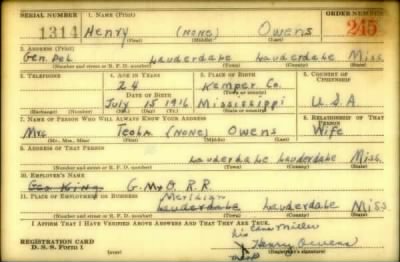 SERIAL NUMBER 1. NAME (Print) ORDER NUMBER
1314 Henry (NONE) Owens 245
(First) (Middle) (Last)
2. ADDRESS (Print)
Gen. Del Lauderdale Lauderdale Miss
(Number and street or R. F. D. number) (Town) (County) (State)
3. TELEPHONE 4. AGE IN YEARS 5. PLACE OF BIRTH 6. COUNTRY OF CITIZENSHIP
24 Kemper Co.
DATE OF BIRTH
July 15 1916 Mississippi U.S.A
(Exchange) (Number) (Mo.) (Day) (Yr.) (State or country)
7. NAME OF PERSON WHO WILL ALWAYS KNOW YOUR ADDRESS 8. RELATIONSHIP OF THAT PERSON
Mrs (NONE) Owens Wife
(Mr., Mrs., Miss) (First) (Middle) (Last)
9. ADDRESS OF THAT PERSON
Lauderdale Lauderdale Miss.
(Number and street or R. F. D. number) (Town) (County) (State)
10. EMPLOYER'S NAME
Geo King G. M & O. R. R.
11. PLACE OF EMPLOYMENT OR BUSINESS Meridian
Lauderdale Lauderdale Miss
(Number and street or R. F. D. number) (Town) (County) (State)
I AFFIRM THAT I HAVE VERIFIED ABOVE ANSWERS AND THAT THEY ARE TRUE.
his Miller
REGISTRATION CARD
D. S. S. FORM 1 X Henry Owens
mark (Registrant's signature)